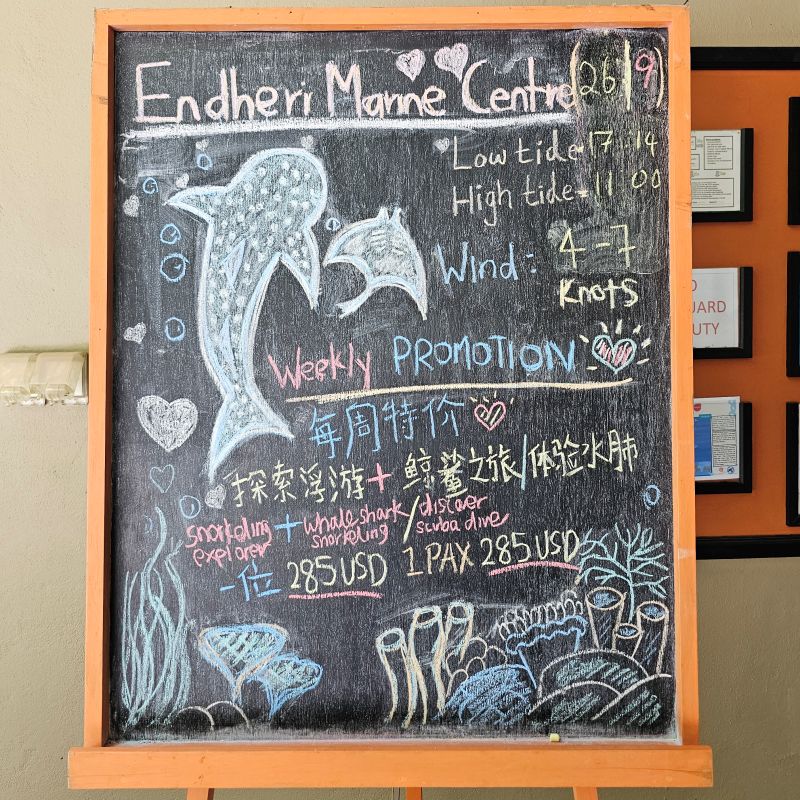 Endheri Marine Centre (26/9)
Low tide = 17 14
High tide = 11 00
Wind : 4-7
Knots
Weekly PROMOTION
每周特价
探索浮游 + 鲸鲨之旅/体验水肺
snorkeling + whale shark / discover
explorer snorkeling scuba dive
一位 285USD 1PAX 285USD
UARD
UTY